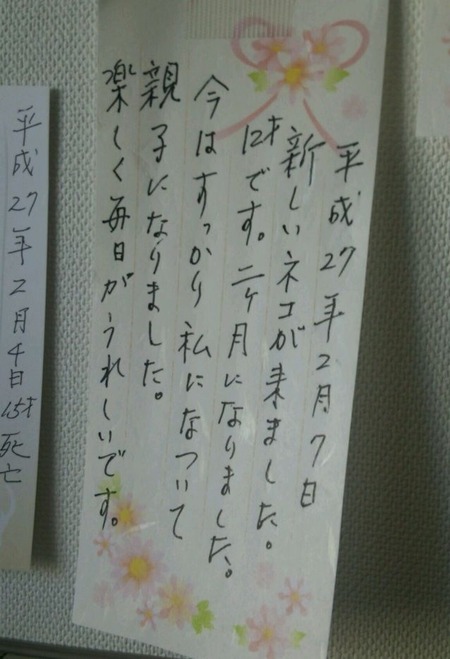 平成27年2月7日
新しいネコが来ました。
12才です。二ヶ月になりました。
今はすっかり私になついて
親子になりました。
楽しく毎日がうれしいです。
平成27年2月4日15才死亡